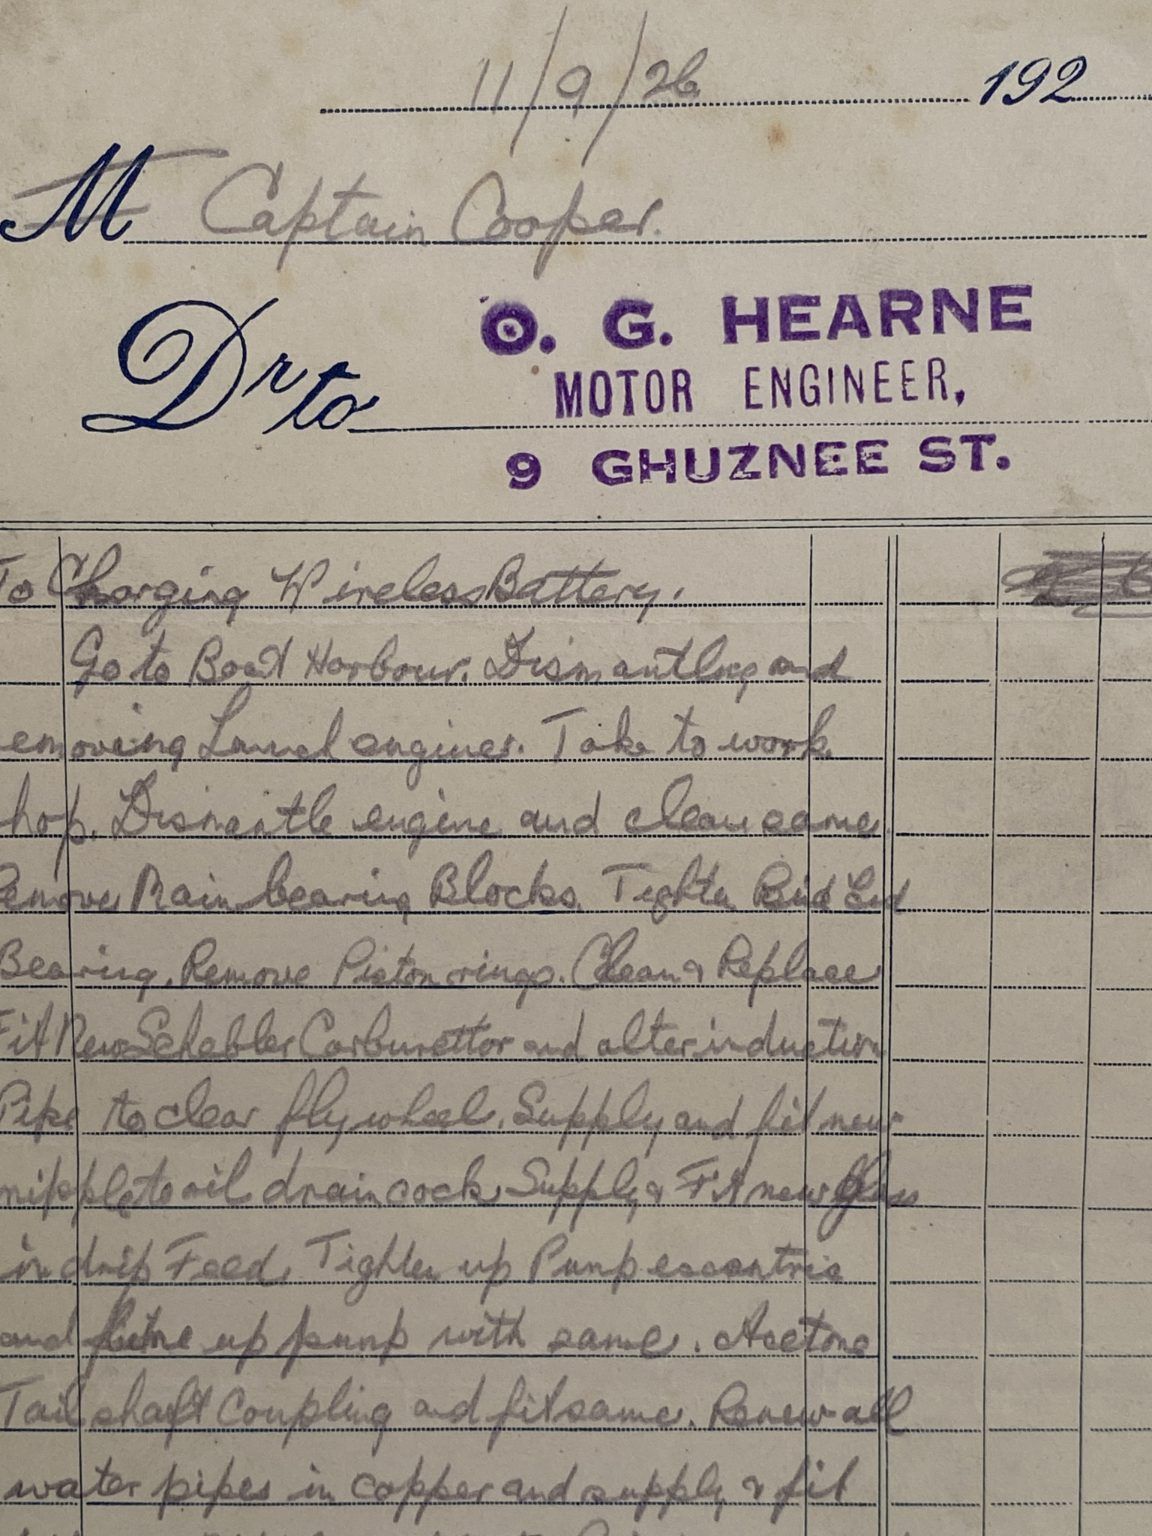 11/9/26 192
M Captain Cooper.
Dr to
O. G. HEARNE
MOTOR ENGINEER,
9 GHUZNEE ST.
To Charging Wireless Battery.
Go to Boat Harbour. Dismantling and
emoving engines. Take to work
hop. Dismantle engine and clean same
emove Main bearing Blocks. Tighten End
Bearing. Remove Piston rings. Clean & Replace
Fit New Schebler Carburettor and alter induction
Pipe to clear fly wheel. Supply and fit new
nipple to oil drain cock. Supply & Fit new glass
in drip Feed. Tighten up Pump eccentric
and up pump with same.
Tail shaft Coupling and fit same. Renew all
water pipes in copper and supply & fit